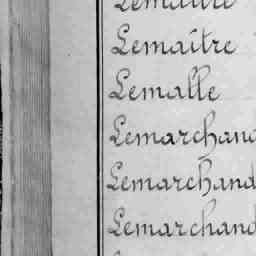 Lemaître
Lemaître
Lemalle
Lemarchand
Lemarchand
Lemarchand